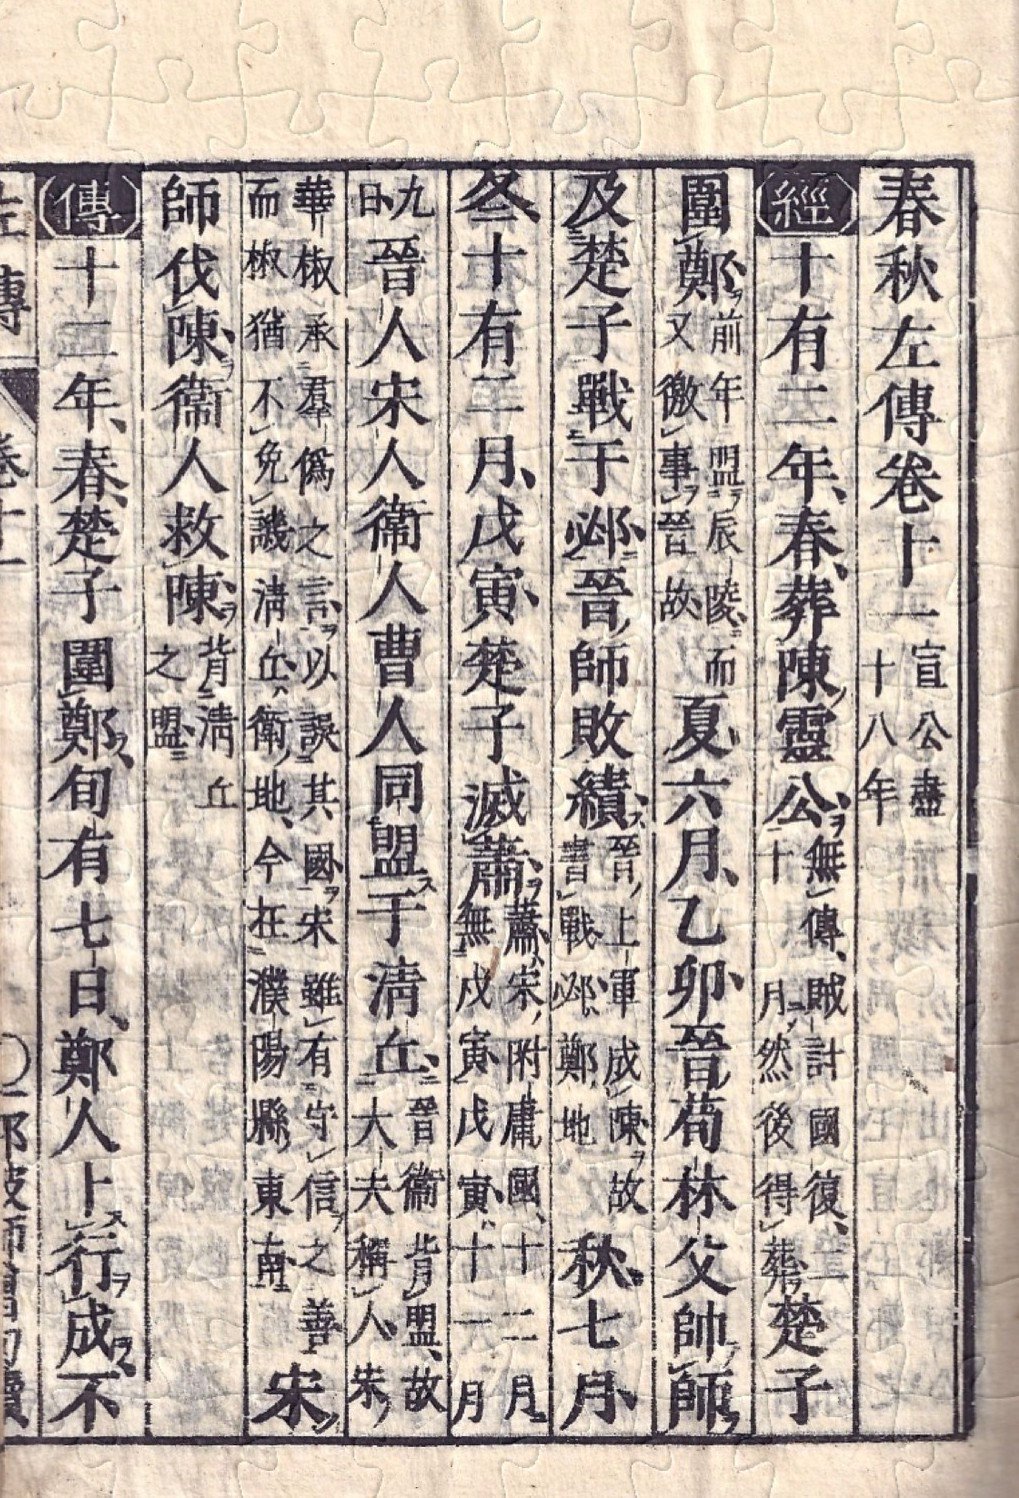 春秋左傳卷十一宣公盡十八年
經十有二年、春、葬陳靈公、無傳、賊討國復、二十一月、然後得葬楚子
圍鄭、前年盟辰陵、而又徼事晉故、夏六月、乙卯、晉荀林父帥師
及楚子戰于邲、晉師敗績、晉上軍成陳故書戰邲、鄭地秋、七月、
冬、十有二月、戊寅、楚子滅蕭、蕭、宋附庸國、十二月無戊寅、戊寅、十一月
九日、晉人宋人衛人曹人同盟于清丘、晉衛背盟、故大夫稱人、宋
華椒承羣偽之言、以誤其國、宋雖有守信之善、而椒猶不免譏、清丘、衛地、今在濮陽縣東南宋
師伐陳、衛人救陳、背清丘之盟
傳十二年、春、楚子圍鄭、旬有七日、鄭人卜行成、不
左傳 卷十一 ○一 那波師曾句讀